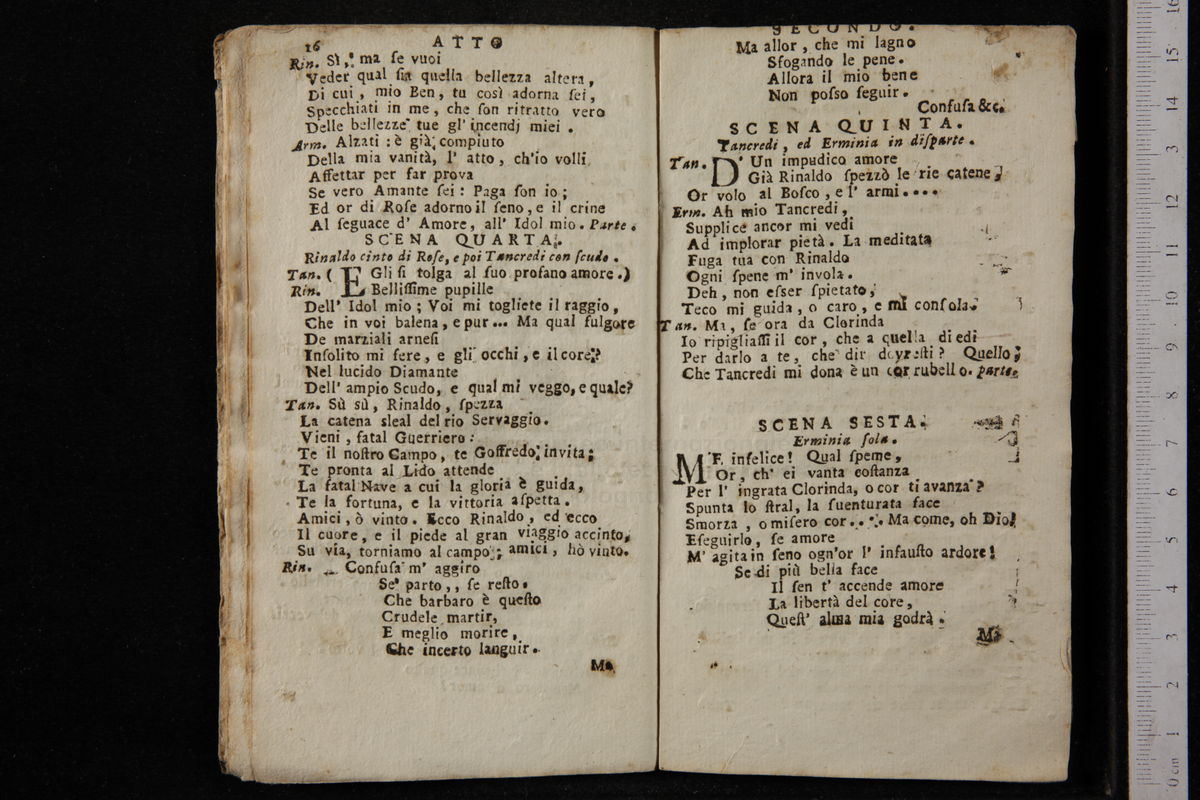 16 ATTO
Rin. Sì, ma ſe vuoi
Veder qual ſia quella bellezza altera,
Di cui, mio Ben, tu così adorna ſei,
Specchiati in me, che ſon ritratto vero
Delle bellezze tue gl' incendj miei.
Arm. Alzati : è già compiuto
Della mia vanità, l' atto, ch'io volli
Affettar per far prova
Se vero Amante ſei : Paga ſon io ;
Ed or di Roſe adorno il ſeno, e il crine
Al ſeguace d' Amore, all' Idol mio. Parte.
SCENA QUARTA.
Rinaldo cinto di Roſe, e poi Tancredi con ſcudo.
Tan. ( EGli ſi tolga al ſuo profano amore.)
Rin. Belliſſime pupille
Dell' Idol mio ; Voi mi togliete il raggio,
Che in voi balena, e pur... Ma qual fulgore
De marziali arneſi
Inſolito mi fere, e gli occhi, e il core ?
Nel lucido Diamante
Dell' ampio Scudo, e qual mi veggo, e quale?
Tan. Sù sù, Rinaldo, ſpezza
La catena sleal del rio Servaggio.
Vieni, fatal Guerriero :
Te il noſtro Campo, te Goffredo invita ;
Te pronta al Lido attende
La fatal Nave a cui la gloria è guida,
Te la fortuna, e la vittoria aſpetta.
Amici, ò vinto. Ecco Rinaldo, ed ecco
Il cuore, e il piede al gran viaggio accinto,
Su via, torniamo al campo ; amici, hò vinto.
Rin. Confuſa m' aggiro
Se parto, , ſe reſto.
Che barbaro è queſto
Crudele martir,
E meglio morire,
Che incerto languir.
Ma
SECONDO.
Ma allor, che mi lagno
Sfogando le pene.
Allora il mio bene
Non poſso ſeguir.
Confuſa &c.
SCENA QUINTA.
Tancredi, ed Erminia in diſparte.
Tan. D' Un impudico amore
Già Rinaldo ſpezzò le rie catene,
Or volo al Boſco, e l' armi....
Erm. Ah mio Tancredi,
Supplice ancor mi vedi
Ad implorar pietà. La meditata
Fuga tua con Rinaldo
Ogni ſpene m' invola.
Deh, non eſser ſpietato,
Teco mi guida, o caro, e mi conſola.
Tan. Ma, ſe ora da Clorinda
Io ripigliaſſi il cor, che a quella diedi
Per darlo a te, che dir dovreſti ? Quello,
Che Tancredi mi dona è un cor rubello. parte.
SCENA SESTA.
Erminia ſola.
M'E infelice ! Qual ſpeme,
Or, ch' ei vanta coſtanza
Per l' ingrata Clorinda, o cor ti avanza ?
Spunta lo ſtral, la fuenturata face
Smorza, o miſero cor.... Ma come, oh Dio!
Eſeguirlo, ſe amore
M' agita in ſeno ogn'or l' infauſto ardore!
Se di più bella face
Il ſen t' accende amore
La libertà del core,
Queſt' alma mia godrà.
Ma